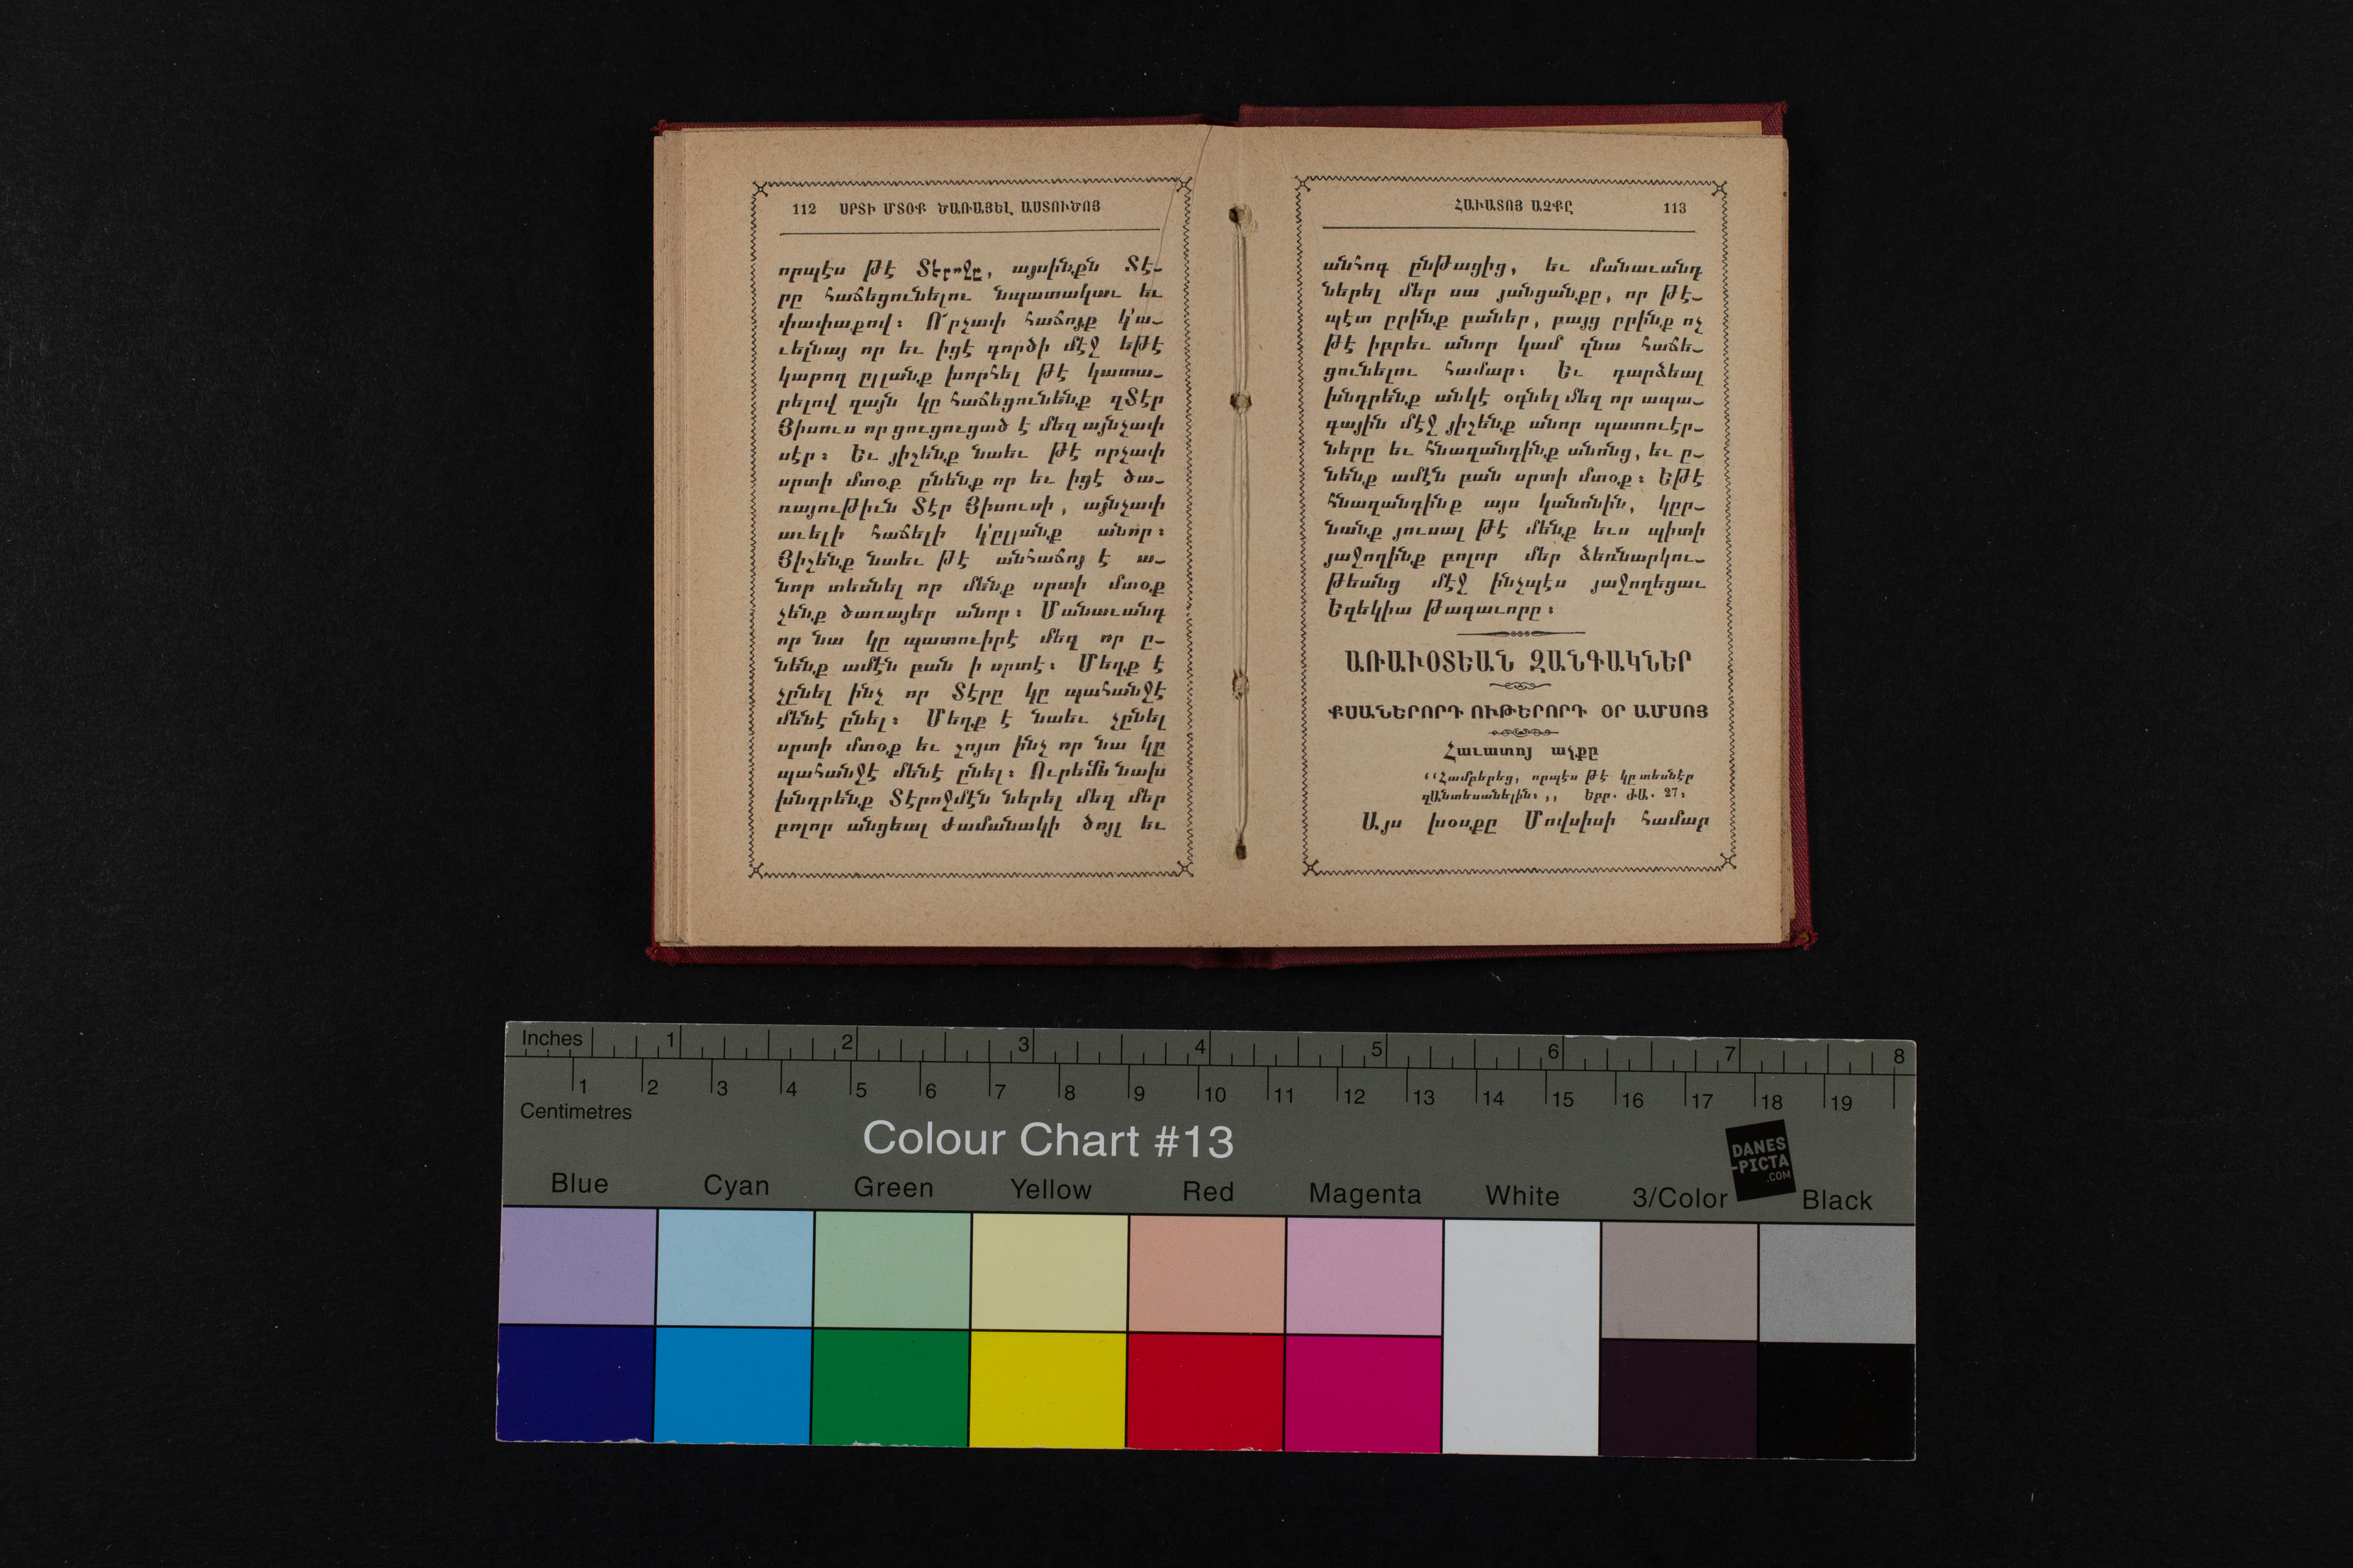 112 ՍՐՏԻ ՄՏՕՔ ԾԱՌԱՅԵԼ ԱՍՏՈՒԾՈՅ
որպէս թէ Տերոջը, այսինքն Տէ-
րը հաճեցունելու նպատակաւ եւ
փափաքով։ Ո՜րչափ հաճոյք կ՚ա-
ւելնայ որ եւ իցէ գործի մէջ եթէ
կարող ըլլանք խորհել թէ կատա-
րելով զայն կը հաճեցունենք զՏէր
Յիսուս որ ցուցուցած է մեզ այնչափ
սէր։ Եւ յիշենք նաեւ թէ որչափ
սրտի մտօք ընենք որ եւ իցէ ծա-
ռայութիւն Տէր Յիսուսի, այնչափ
աւելի հաճելի կ՚ըլլանք անոր։
Յիշենք նաեւ թէ անհաճոյ է ա-
նոր տեսնել որ մենք սրտի մտօք
չենք ծառայեր անոր։ Մանաւանդ
որ նա կը պատուիրէ մեզ որ ը-
նենք ամէն բան ի սրտէ։ Մեղք է
չընել ինչ որ Տէրը կը պահանջէ
մենէ ընել։ Մեղք է նաեւ չընել
սրտի մտօք եւ շոյտ ինչ որ նա կը
պահանջէ մենէ ընել։ Ուրեմն նախ
խնդրենք Տէրոջմէն ներել մեզ մեր
բոլոր անցեալ ժամանակի ծոյլ եւ
ՀԱՒԱՏՈՅ ԱՉՔԸ 113
անհոգ ընթացից, եւ մանաւանդ
ներել մեր սա յանցանքը, որ թէ-
պէտ ըրինք բաներ, բայց ըրինք ոչ
թէ իբրեւ անոր կամ զնա հաճե-
ցունելու համար։ Եւ դարձեալ
խնդրենք անկէ օգնել մեզ որ ապա-
գային մէջ յիշենք անոր պատուէր-
ները եւ հնազանդինք անոնց, եւ ը-
նենք ամէն բան սրտի մտօք։ Եթէ
հնազանդինք այս կանոնին, կըր-
նանք յուսալ թէ մենք եւս պիտի
յաջողինք բոլոր մեր ձեռնարկու-
թեանց մէջ ինչպէս յաջողեցաւ
Եզեկիա թագաւորը։
ԱՌԱՒՕՏԵԱՆ ԶԱՆԳԱԿՆԵՐ
ՔՍԱՆԵՐՈՐԴ ՈՒԹԵՐՈՐԴ ՕՐ ԱՄՍՈՅ
Հաւատոյ աչքը
‘‘Համբերեց, որպէս թէ կը տեսնէր
զԱնտեսանելին։,, Եբր. ԺԱ. 27։
Այս խօսքը Մովսիսի համար
Inches 1 2 3 4 5 6 7 8
1 2 3 4 5 6 7 8 9 10 11 12 13 14 15 16 17 18 19
Centimetres
Colour Chart #13
DANES
-PICTA
.COM
Blue Cyan Green Yellow Red Magenta White 3/Color Black